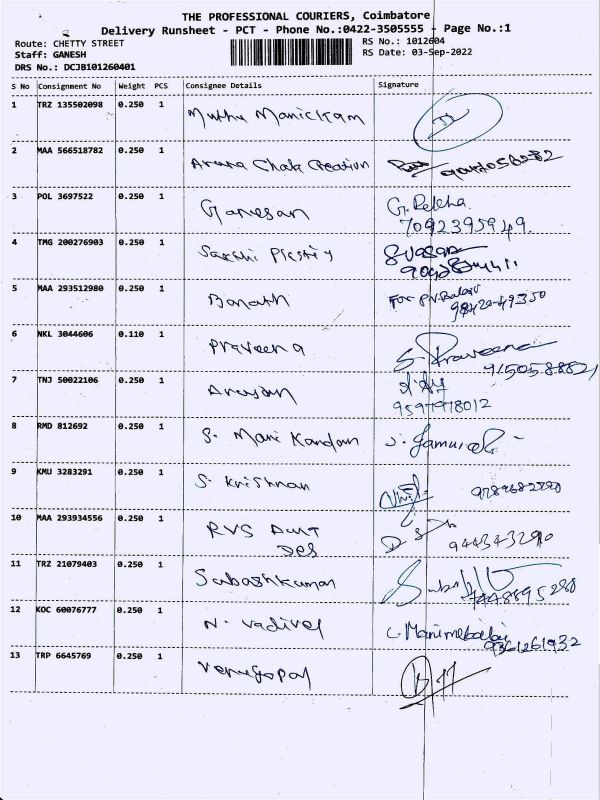 THE PROFESSIONAL COURIERS, Coimbatore
Delivery Runsheet - PCT - Phone No.:0422-3505555 - Page No.:1
Route: CHETTY STREET
RS No.: 1012604
Staff: GANESH
RS Date: 03-Sep-2022
DRS No.: DCJB101260401
S No Consignment No Weight PCS Consignee Details Signature
1 TRZ 135502098 0.250 1 Muthu Manickam
2 MAA 566518782 0.250 1 Creation
3 POL 3697522 0.250 1 Ganesan G. Rekha
7092395949.
4 TMG 200276903 0.250 1 Sakthi
5 MAA 293512980 0.250 1 For P.V. Balaji
98422-49350
6 NKL 3044606 0.110 1 Praveena S. Praveena
9150588821
7 TNJ 50022106 0.250 1
9597978012
8 RMD 812692 0.250 1 S. Mani Kandan
9 KMU 3283291 0.250 1 S. Krishnan
10 MAA 293934556 0.250 1 RVS
11 TRZ 21079403 0.250 1 Subashkumar
7448895280
12 KOC 60076777 0.250 1 N. Vadivel C. Manimekalai
9361261932
13 TRP 6645769 0.250 1 Venugopal